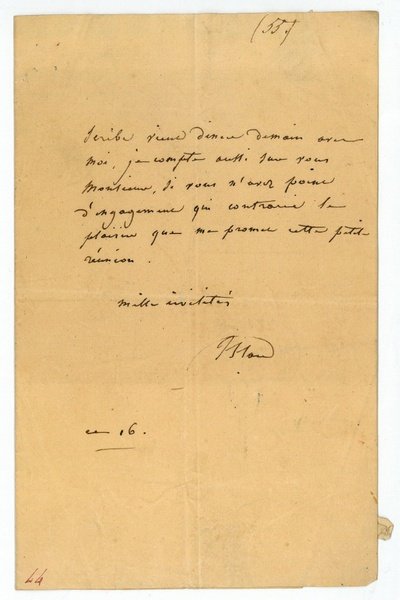 (55.)
Scribe vient diner demain avec
moi, je compte aussi sur vous
Monsieur, si vous n'avez point
d'engagement qui contrarie le
plaisir que me promet cette petite
réunion.
mille civilités
ce 16.
44